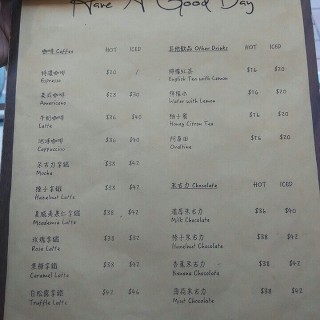 Have A Good Day
咖啡 Coffee HOT ICED
特濃咖啡 $20 /
Espresso
美式咖啡
Americano
牛奶咖啡 $36 $40
Latte
泡沫咖啡 $36 $40
Cappuccino
朱古力拿鐵 $38 $42
Mocha
榛子拿鐵 $38 $42
Hazelnut Latte
夏威夷果仁拿鐵 $38 $42
Macadamia Latte
玫瑰拿鐵 $38
Rose Latte
焦糖拿鐵 $38 $42
Caramel Latte
白松露拿鐵 $42 $46
Truffle Latte
其他飲品 Other Drinks HOT ICED
檸檬紅茶 $16 $20
English Tea with Lemon
檸檬水 $16 $20
Water with Lemon
柚子蜜 $16 $20
Honey Citron Tea
阿華田 $16 $20
Ovaltine
朱古力 Chocolate HOT ICED
濃厚朱古力 $36 $40
Milk Chocolate
榛子朱古力 $38 $42
Hazelnut Chocolate
香蕉朱古力 $38 $42
Banana Chocolate
薄荷朱古力 $38 $42
Mint Chocolate